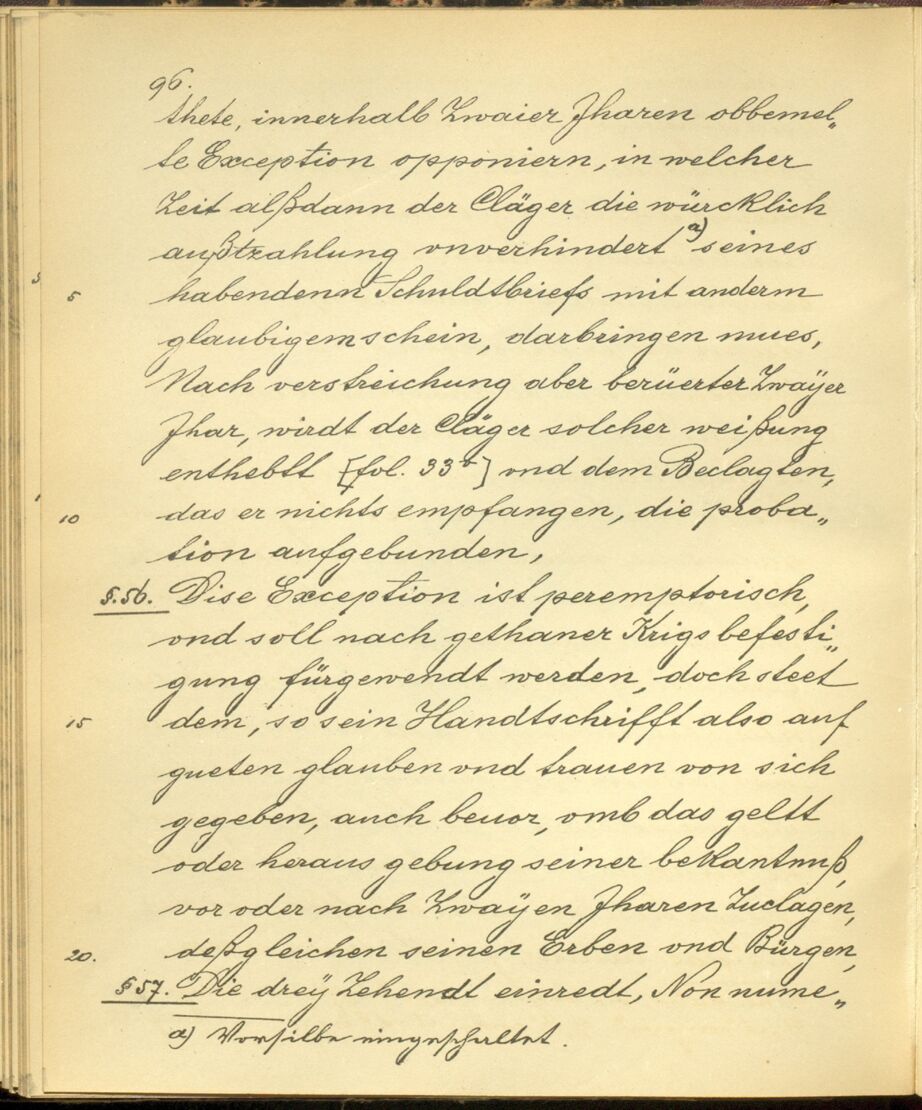 96.
thete, innerhalb Zwaier Jharen obbemel„
te Exception opponiern, in welcher
Zeit alßdann der Cläger die würcklich
außtzahlung vnverhindert a) seines
habendenn Schuldtbriefs mit anderm
5
glaubigem schein, darbringen mues,
Nach verstreichung aber berüerter Zwaÿer
Jhar, wirdt der Cläger solcher weißung
enthebtt [fol. 33b] vnd dem Beclagten,
das er nichts empfangen, die proba„
10
tion aufgebunden,
§.56. Dise Exception ist peremptorisch,
vnd soll nach gethaner Krigs befesti„
gung fürgewendt werden, doch steet
dem, so sein Handtschrifft also auf
15
gueten glauben vnd trauen von sich
gegeben, auch beuor, vmb das geltt
oder heraus gebung seiner bekantnuß,
vor oder nach Zwaÿen Jharen Zuclagen,
deßgleichen seinen Erben vnd Bürgen,
20.
§ 57. Die dreÿ Zehendt einredt, Non nume„
a) Vorsilbe eingeschaltet.